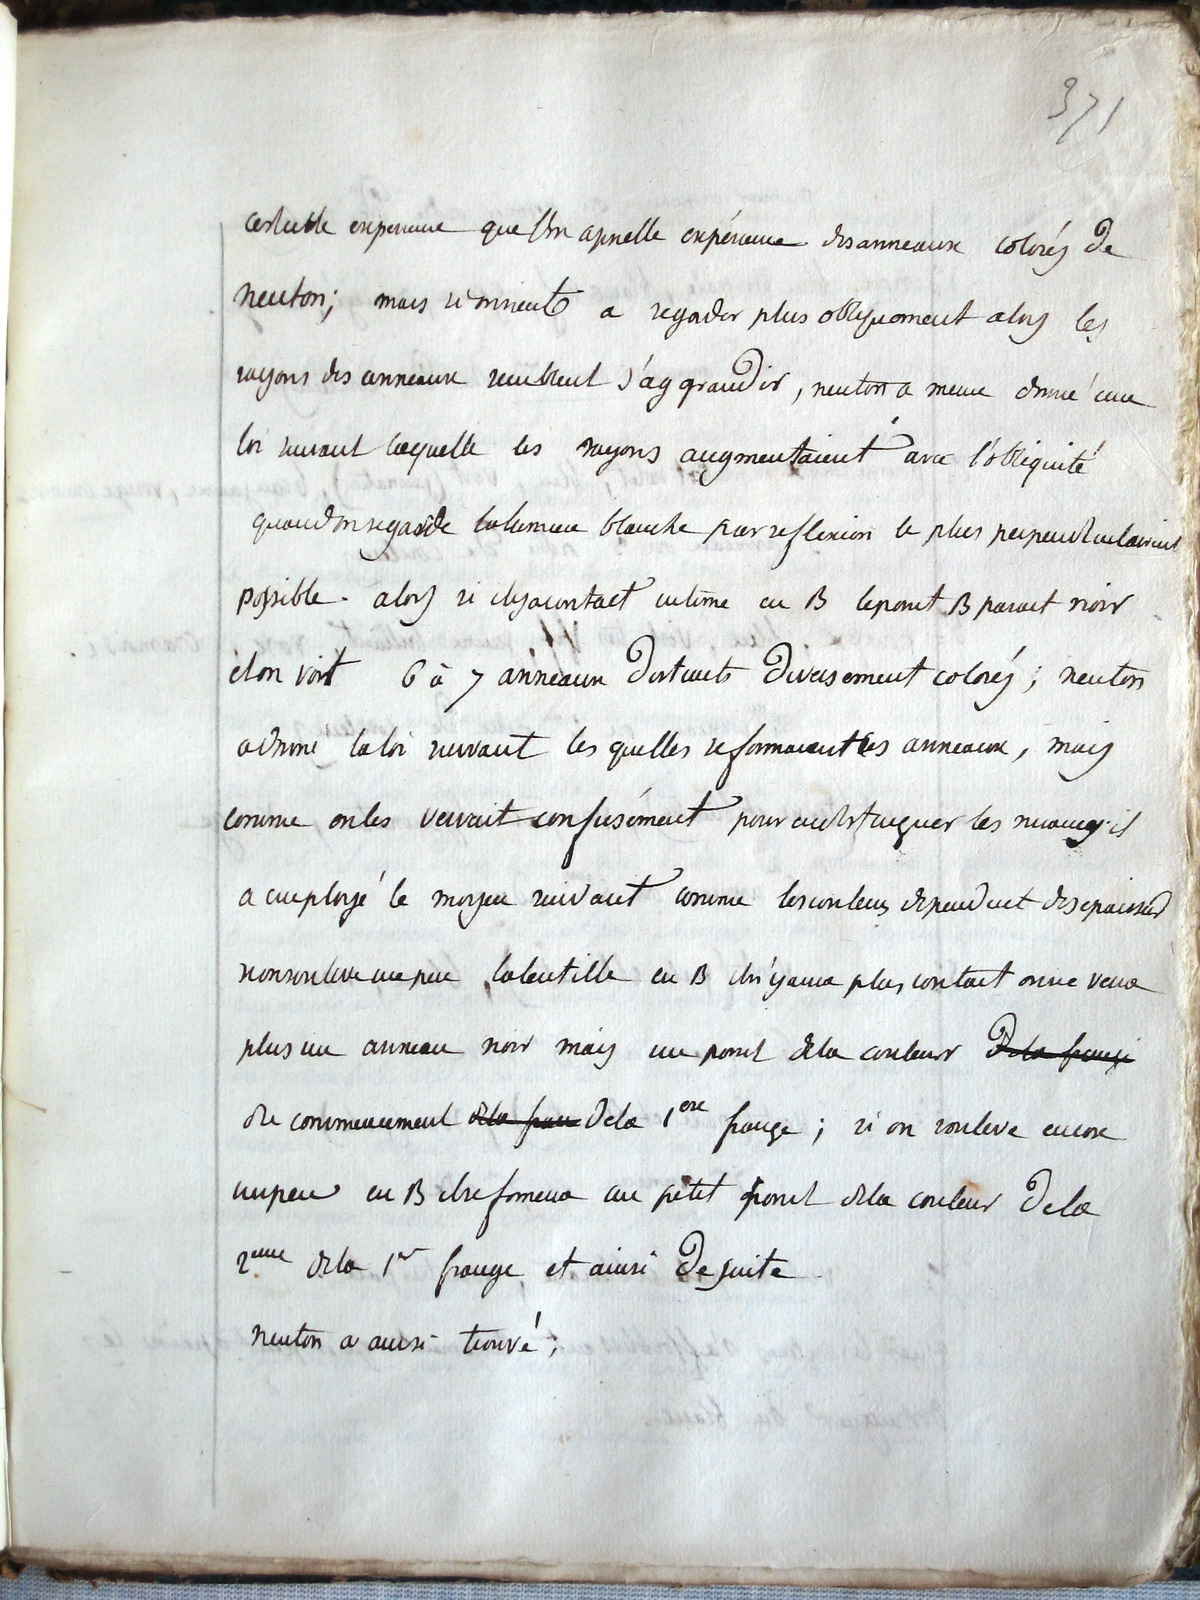 371
cest cette experience que l'on apnelle expérience des anneaux colorés de
neuton; mais si on vient a regarder plus obliquement alors les
rayons des anneaux semblent s'aggrandir, neuton a meme donné une
loi suivant laquelle les rayons augmentaient avec l'obliquité
quand on regarde la lumiere blanche par reflexion le plus perpendiculairement
possible. alors si il y a contact intime en B le point B parait noir
et on voit 6 à 7 anneaux distincts diversement colorés; neuton
a donné la loi suivant les quelles se formaient les anneaux, mais
comme on les verrait confusément pour en distinguer les nuances il
a employé le moyen suivant comme les couleurs dependent des epaisseurs
si on souleve un peu la lentille en B il n'y aura plus contact on ne verra
plus un anneau noir mais un point de la couleur de la frange
du commencement de la fran de la 1ere frange; si on souleve encore
un peu en B il se formera un petit point de la couleur de la
2eme de la 1er frange et ainsi de suite
neuton a aussi trouvé;